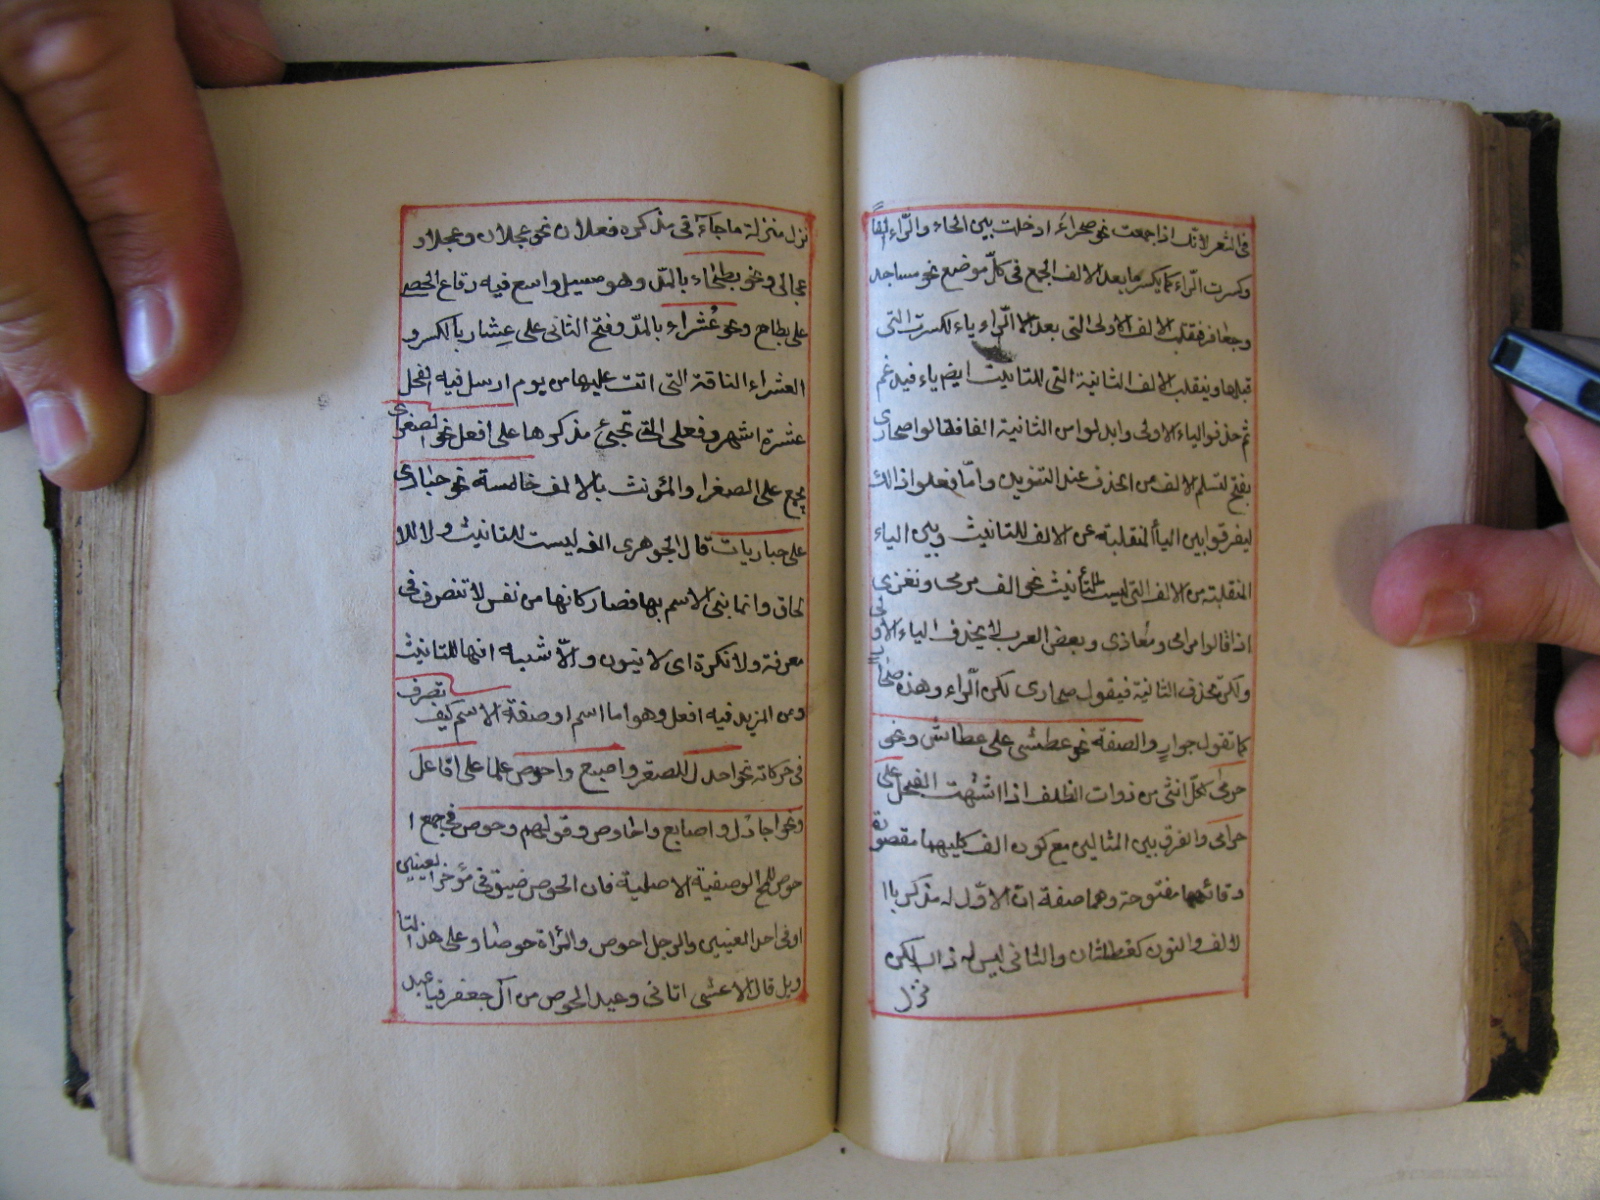 فى الشعر لانّك اذا جمعت نحو صحراءَ ادخلت بين الحاء والرّاء الفاً
وكسرت الرّاء كما يكسر ما بعد الالف الجمع فى كلّ موضع نحو مساجد
وجعافر فقلبت الالف الاولى التى بعد الرّاء ياء لكسرت التى
قبلها وينقلب الالف الثانية التى للتانيث ايضم ياء فيدغم
ثم حذفوا الياء الاولى وابدلوا من الثانية الفا فقالوا صحارى
بفتح لتسلم الالف من الحذف عند التنوين وامّا فعلوا ذالك
ليفرقوا بين الياأ المنقلبة من الالف للتانيث وبين الياء
المنقلبة من الالف التى ليست للتأنيث نحو الف مرمى ونغزى
اذا قالوا مرامى ومُغاذى وبعض العرب لا يحذف الياء الاولى
ولكن يحذف الثانية فيقول صحارى لكن الرّاء وهذه صحارٍ
كما تقول جوارٍ والصفة نحو عطشى على عطاش ونحو
حرمى لكلّ انثى من ذوات الظلف اذا اشتهت الفحل على
حرامى والفرق بين المثالين مع كون الف كليهما مقصورة
دفائهما مفتوحة وهما صفة ان الاوّل له مذكر باا
لالف والنون كعطشان والثانى ليس له ذالك لكن
نزل
نزل منزلة ما جاءَ فى مذكره فعلان نحو عجلان وعجلاو
عجالى ونحو بطحاء بالمدّ وهو مسيل واسع فيه دقاع الحصى
على بطاح ونحو عُشراء بالمدّ وفتح الثانى على عِشار بالكسر و
العشراء الناقة التى اتت عليها من يوم ارسل فيه الفحل
عشرة اشهر وفعلى التى تجئ مذكرها على افعل نحو الصغرى
يجمع على الصغر والمؤنث بالالف خامسة نحو حبارى
على حباريات قال الجوهرى الفه ليست للتانيث ولا للا
لحاق وانما بنى الاسم بها فصار كانها من نفس لا تنصرف فى
معرفة ولا نكرة اى لا ينون والّا شبه انها للتانيث
ومن المزيد فيه افعل وهو اما اسم او صفة الاسم كيف تصرف
فى حركاته نحو اجدل للصقر واصبع واحوص علما على افاعل
ونحو اجادل واصابع واحاوص وقولهم وحوص فى جمع ا
حوص للمح الوصفية الاصلية فان الحوص ضيق فى مؤخر العينين
او فى احد العينين والرجل احوص والمرأة حوصا وعلى هذا التا
ويل قال الاعشى اتانى وعيد الحوص من آل جعفر فيا عبد